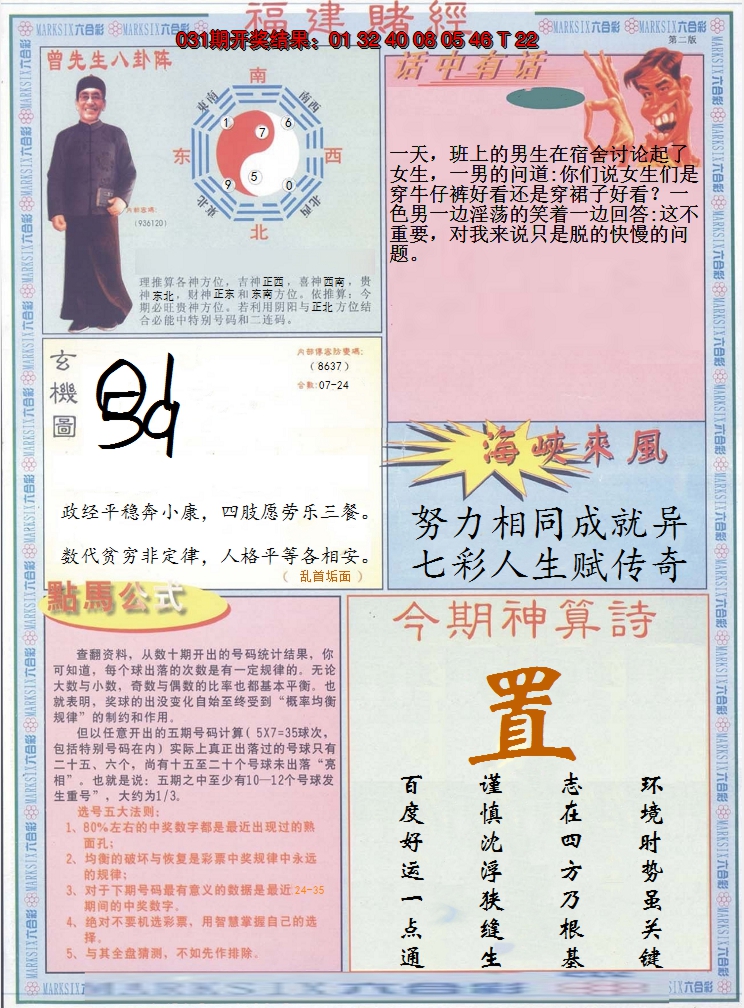 福建賭經
031期开奖结果：01 32 40 08 05 46 T 22
第二版
曾先生八卦阵
南
東南
南西
1
7
6
东
西
9
5
0
東北
北西
北
内部密碼:
(936120)
理推算各神方位，吉神正西，喜神西南，贵
神东北，财神正东和东南方位。依推算：今
期必旺贵神方位。若利用阴阳与正北方位结
合必能中特别号码和二连码。
话中有话
一天，班上的男生在宿舍讨论起了
女生，一男的问道:你们说女生们是
穿牛仔裤好看还是穿裙子好看？一
色男一边淫荡的笑着一边回答:这不
重要，对我来说只是脱的快慢的问
题。
玄機圖
(8637)
合数:07-24
政经平稳奔小康，四肢愿劳乐三餐。
数代贫穷非定律，人格平等各相安。
（ 乱首垢面 ）
海峽來風
努力相同成就异
七彩人生赋传奇
點馬公式
查翻资料，从数十期开出的号码统计结果，你
可知道，每个球出落的次数是有一定规律的。无论
大数与小数，奇数与偶数的比率也都基本平衡。也
就表明，奖球的出没变化自始至终受到“概率均衡
规律”的制约和作用。
但以任意开出的五期号码计算( 5X7=35球次，
包括特别号码在内）实际上真正出落过的号球只有
二十五、六个，尚有十五至二十个号球未出落“亮
相”。也就是说：五期之中至少有10—12个号球发
生重号”，大约为1/3。
选号五大法则：
1、80%左右的中奖数字都是最近出现过的熟
面孔；
2、均衡的破坏与恢复是彩票中奖规律中永远
的规律；
3、对于下期号码最有意义的数据是最近24-35
期间的中奖数字。
4、绝对不要机选彩票，用智慧掌握自己的选
择。
5、与其全盘猜测，不如先作排除。
今期神算詩
置
环境时势虽关键
志在四方乃根基
谨慎沈浮狭缝生
百度好运一点通
MARKSIX六合彩